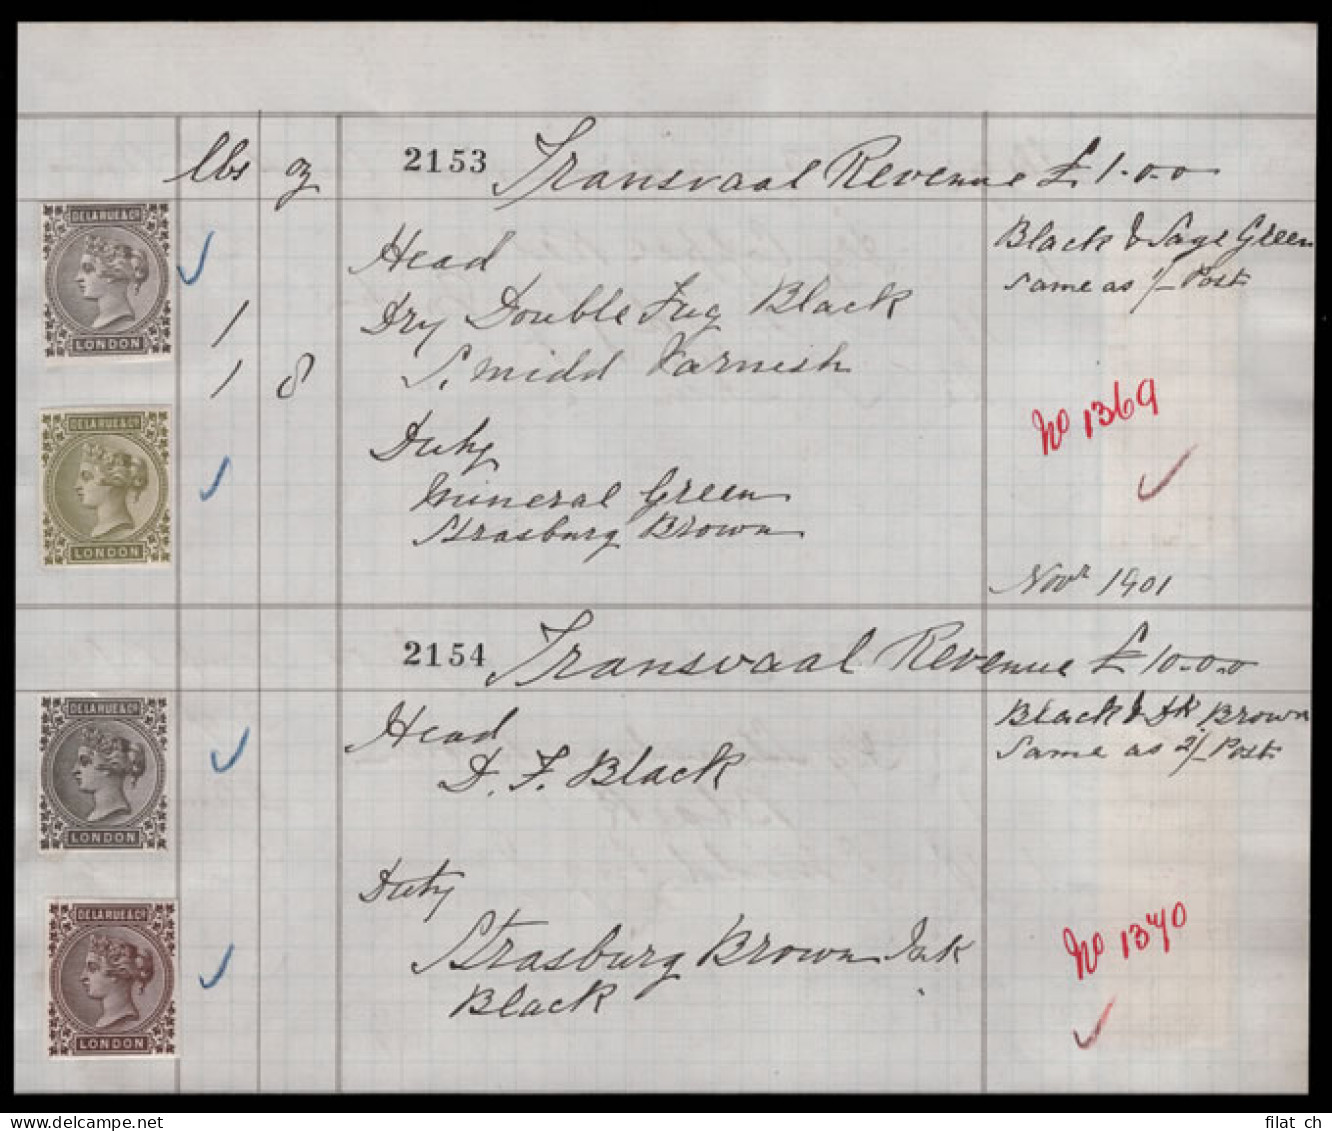 lbs oz
2153 Transvaal Revenue £1-0-0
DE LA RUE & Co
LONDON
Head
Black & Sage Green
Same as 1/- Post
1 Dry Double Fug Black
1 8 S. Midd Varnish
DE LA RUE & Co
LONDON
No 1369
Duty
Mineral Green
Strasburg Brown
Novr 1901
2154 Transvaal Revenue £10-0-0
DE LA RUE & Co
LONDON
Head
Black & Dk. Brown
Same as 2/- Post
D. F. Black
Duty
DE LA RUE & Co
LONDON
No 1370
Strasburg Brown Ink
Black
filat ch